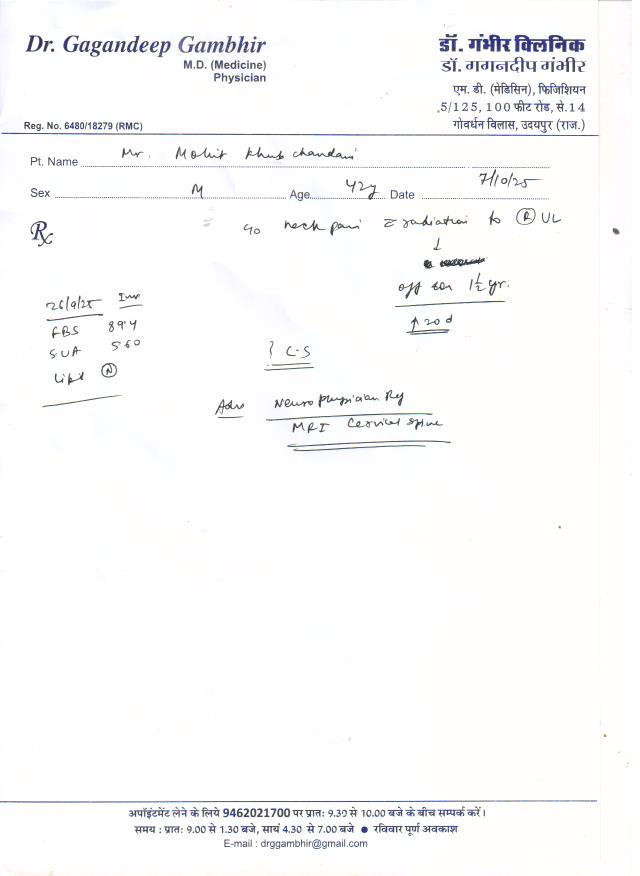 Dr. Gagandeep Gambhir
M.D. (Medicine)
Physician
Reg. No. 6480/18279 (RMC)
डॉ. गंभीर क्लिनिक
डॉ. गगनदीप गंभीर
एम. डी. (मेडिसिन), फिजिशियन
5/125, 100 फीट रोड, से.14
गोवर्धन विलास, उदयपुर (राज.)
Pt. Name Mr. Mohit Khubchandani
Sex M Age 42y Date 7/10/25
Rx
c/o neck pain radiation to (R) UL
↓
off & on 1½ yr.
↑ 20 d
26/9/25 Inv
FBS 89.4
SUA 5.60
Lipid (N)
? C-S
Adv Neurophysician Ref
MRI Cervical Spine
अपॉइंटमेंट लेने के लिये 9462021700 पर प्रातः 9.30 से 10.00 बजे के बीच सम्पर्क करें।
समय : प्रातः 9.00 से 1.30 बजे, सायं 4.30 से 7.00 बजे ● रविवार पूर्ण अवकाश
E-mail : drggambhir@gmail.com